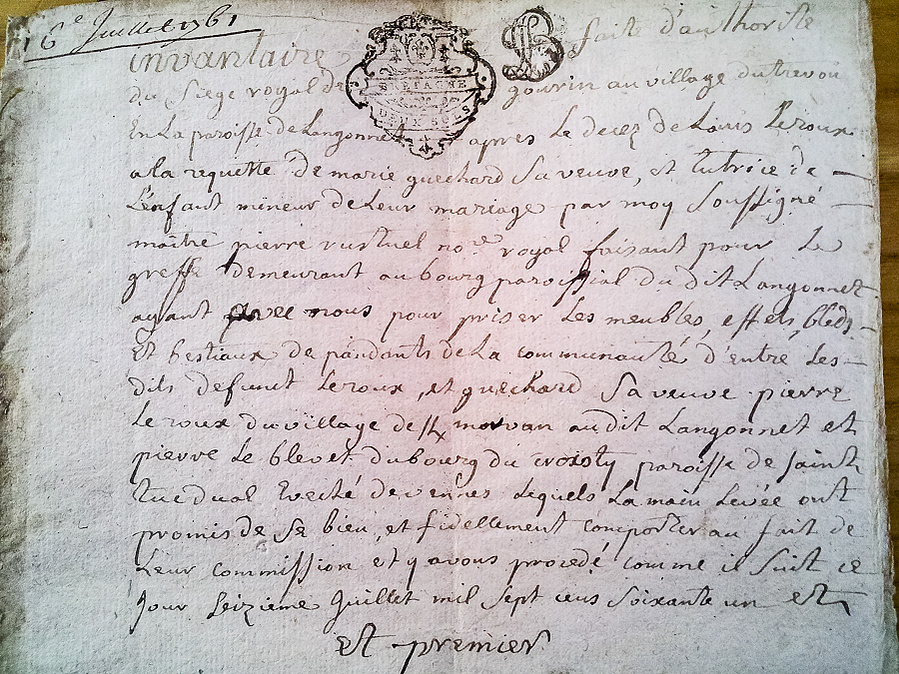 16e Juillet 1761
invantaire faite d'authorité
BRETAGNE
DEUX SOLS
du siege royal de gourin au village du trevou
En La paroisse de Langonnet apres Le decez de Louis Leroux
a la requette de marie guechard sa veuve, et tutrice de
L'enfant mineur de Leur mariage par moy soussigné
maitre pierre rustuel nore royal faisant pour Le
greffe demeurant au bourg paroissial du dit Langonnet
ayant avec nous pour priser Les meubles, effets, bleds
Et bestiaux de pandants de La communauté d'entre Les
dits defunt Leroux, et guechard sa veuve pierre
Le roux du village de morvan au dit Langonnet et
pierre Le blevet du bourg du croisty paroisse de saint
tuedual Eveché de vennes Lequels La main Levée ont
promis de se bien, et fidellement comporter au fait de
Leur commission et y avons procedé comme il suit ce
jour seizieme Juillet mil sept cens soixante un et
Et premier